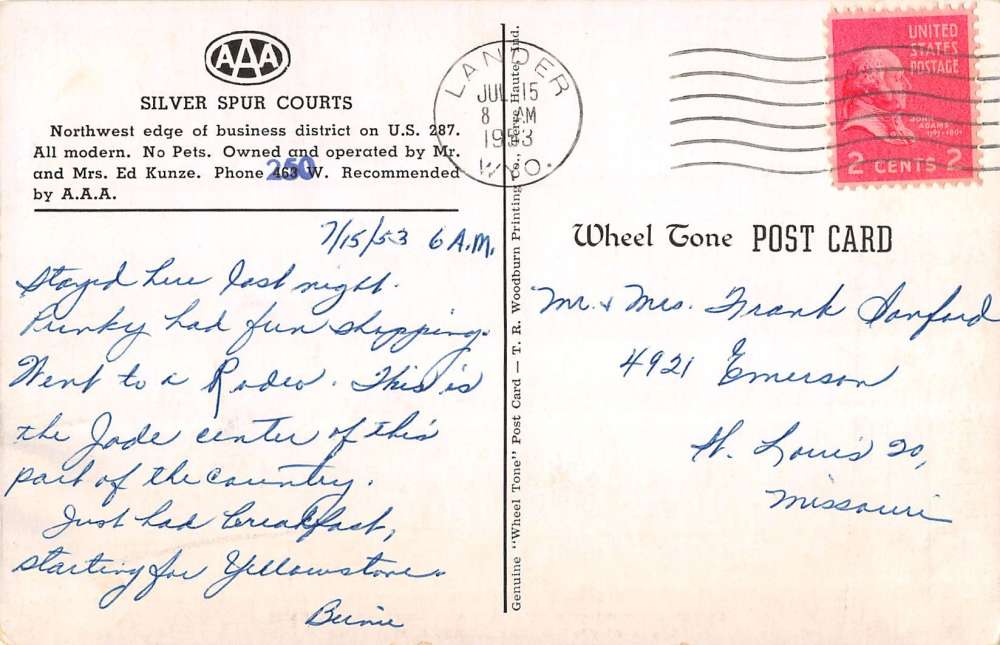 AAA
SILVER SPUR COURTS
Northwest edge of business district on U.S. 287.
All modern. No Pets. Owned and operated by Mr.
and Mrs. Ed Kunze. Phone 463 W. Recommended
250
by A.A.A.
7/15/53 6 A.M.
Stayed here last night.
Punky had fun shopping.
Went to a Rodeo. This is
the Jade center of this
part of the country.
Just had breakfast,
starting for Yellowstone.
Bernie
Genuine "Wheel Tone" Post Card — T. R. Woodburn Printing Co., Terre Haute, Ind.
LANDER
JUL 15
8 AM
1953
WYO.
UNITED
STATES
POSTAGE
JOHN
ADAMS
1797-1801
2 CENTS 2
Wheel Tone POST CARD
Mr. & Mrs. Frank Sanford
4921 Emerson
St. Louis 20,
Missouri